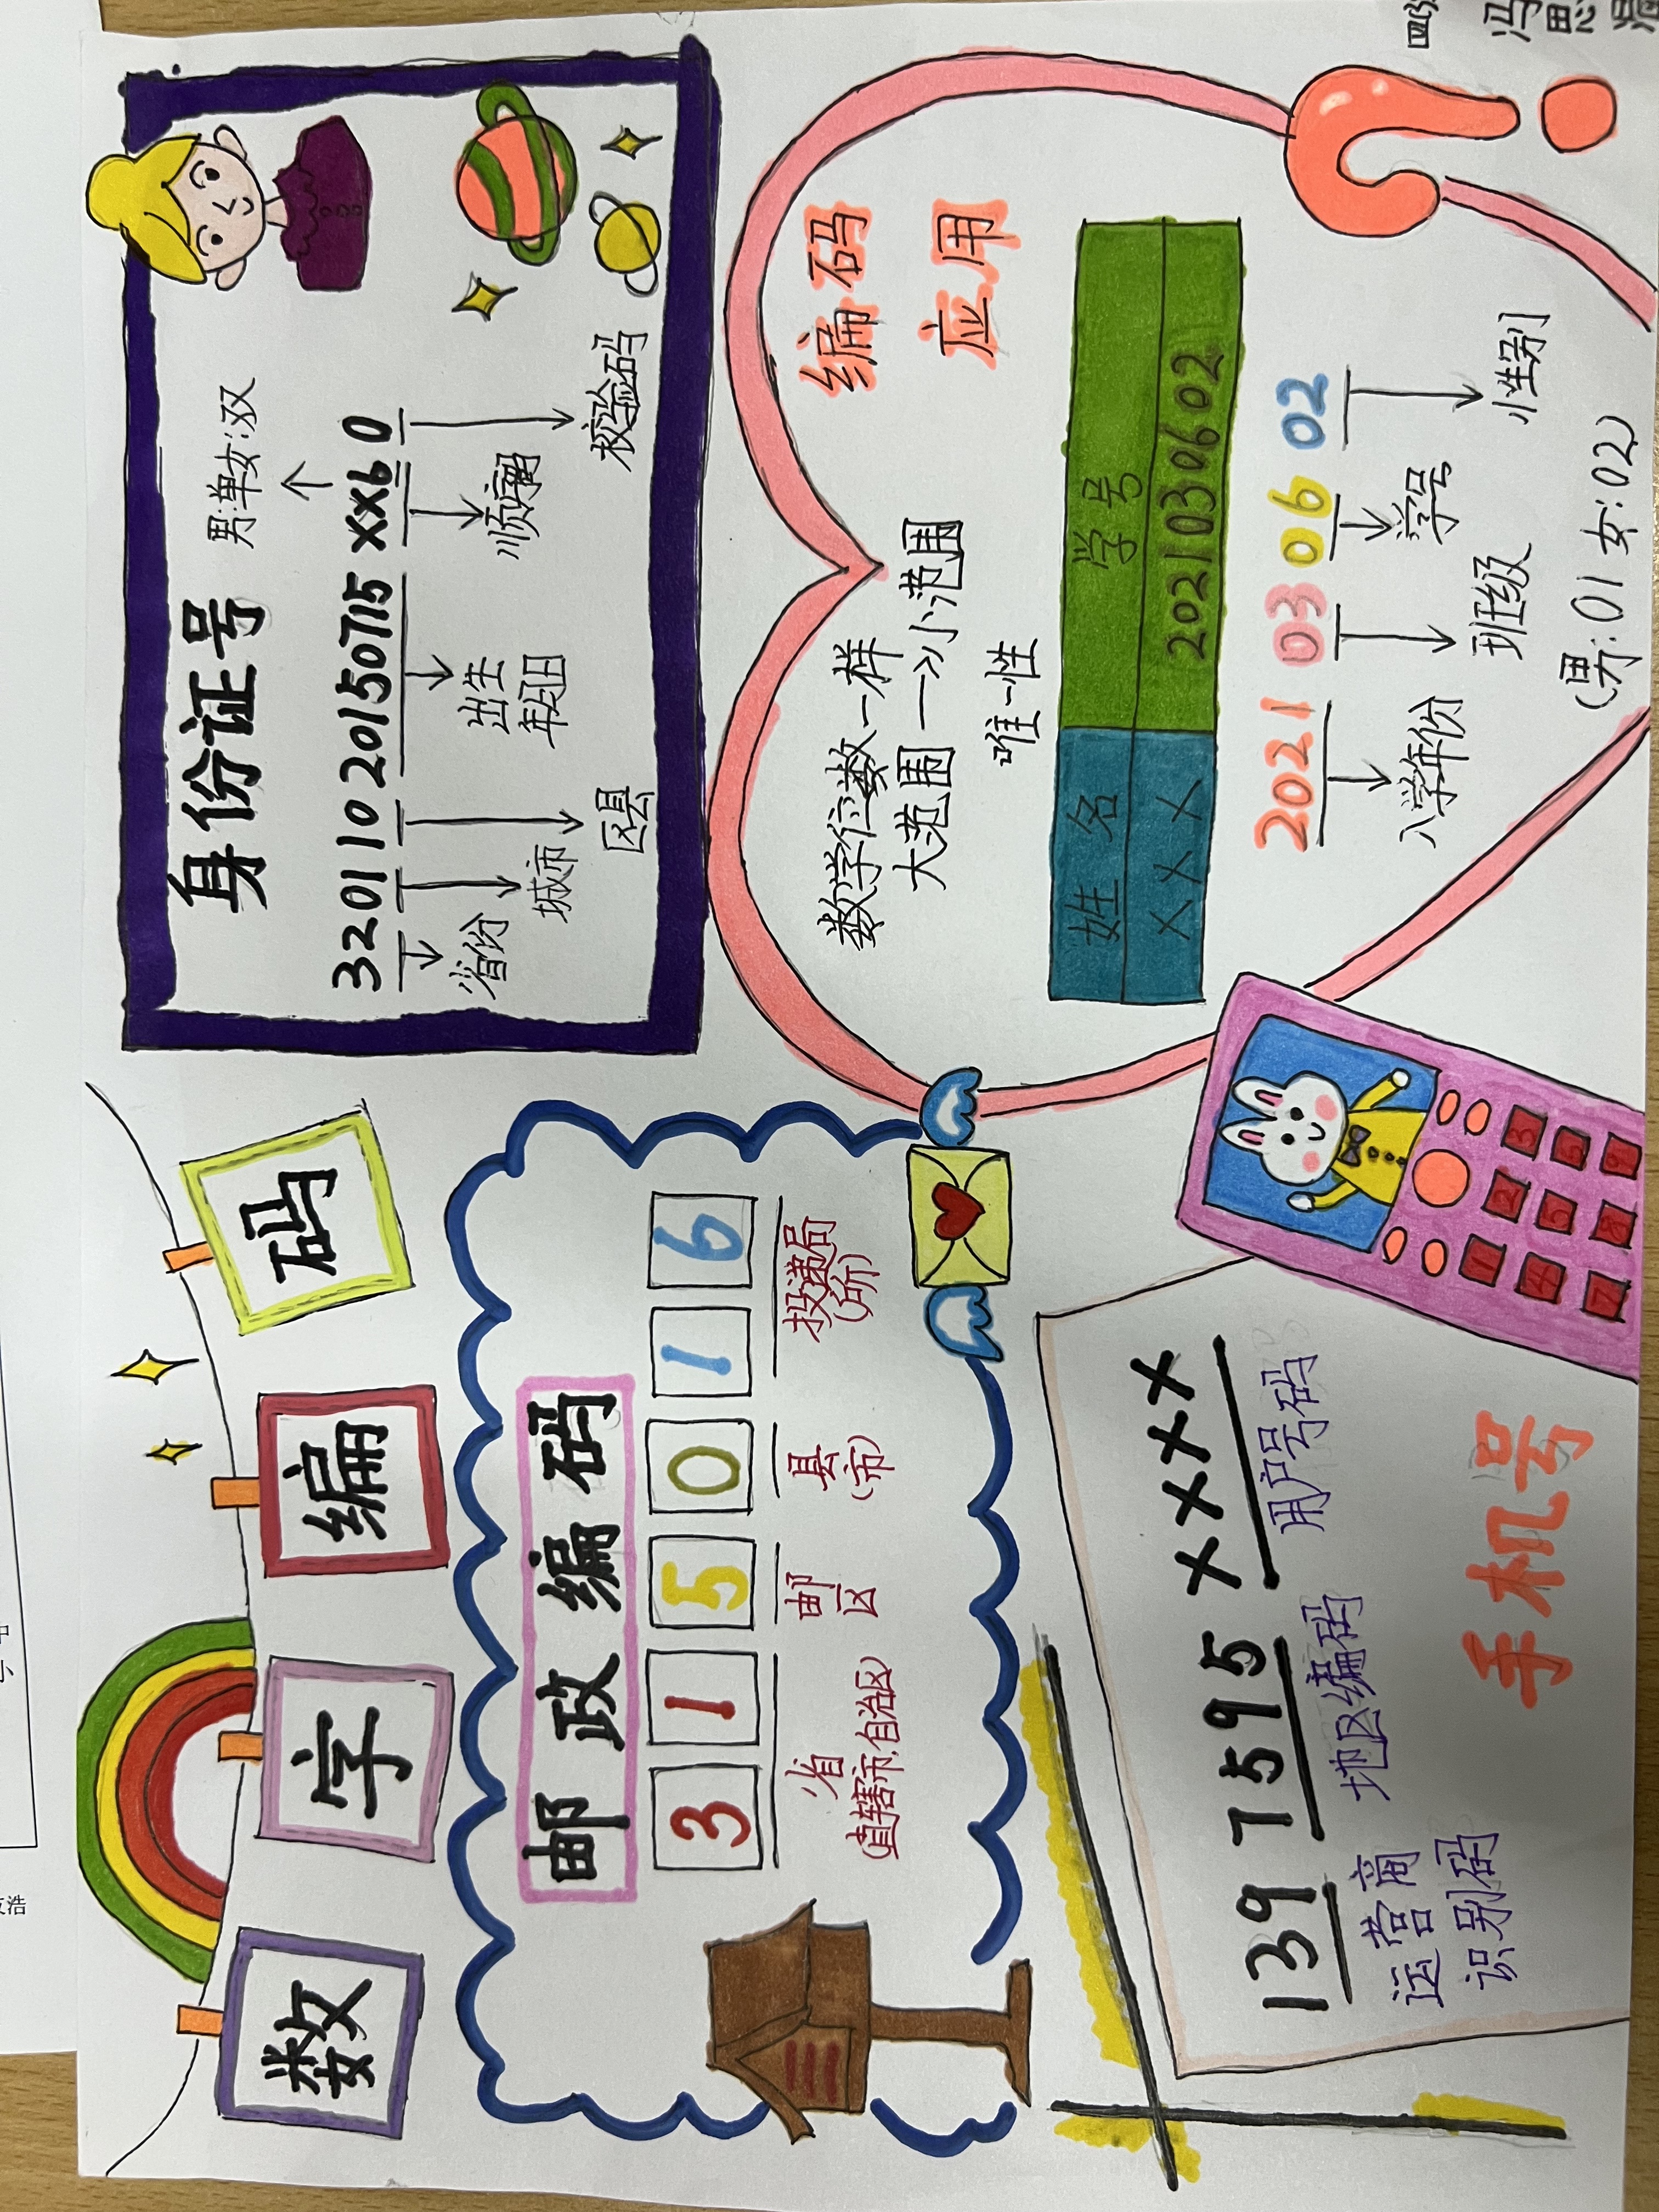 数字编码
邮政编码
3 1 5 0 1 6
省
(直辖市,自治区)
邮区
县
(市)
投递局
(所)
139 7595 xxxx
运营商
识别码
地区编码
用户号码
手机号
1 2 3
4 5
7 8 9
身份证号
男:单女:双
320110 20150715 xx60
省份
城市
区县
出生
年月日
顺序码
校验码
编码
应用
数学位数一样
大范围→小范围
唯一性
姓名 学号
XXX 2021030602
2021 03 06 02
入学年份
班级
学号
性别
(男:01 女:02)